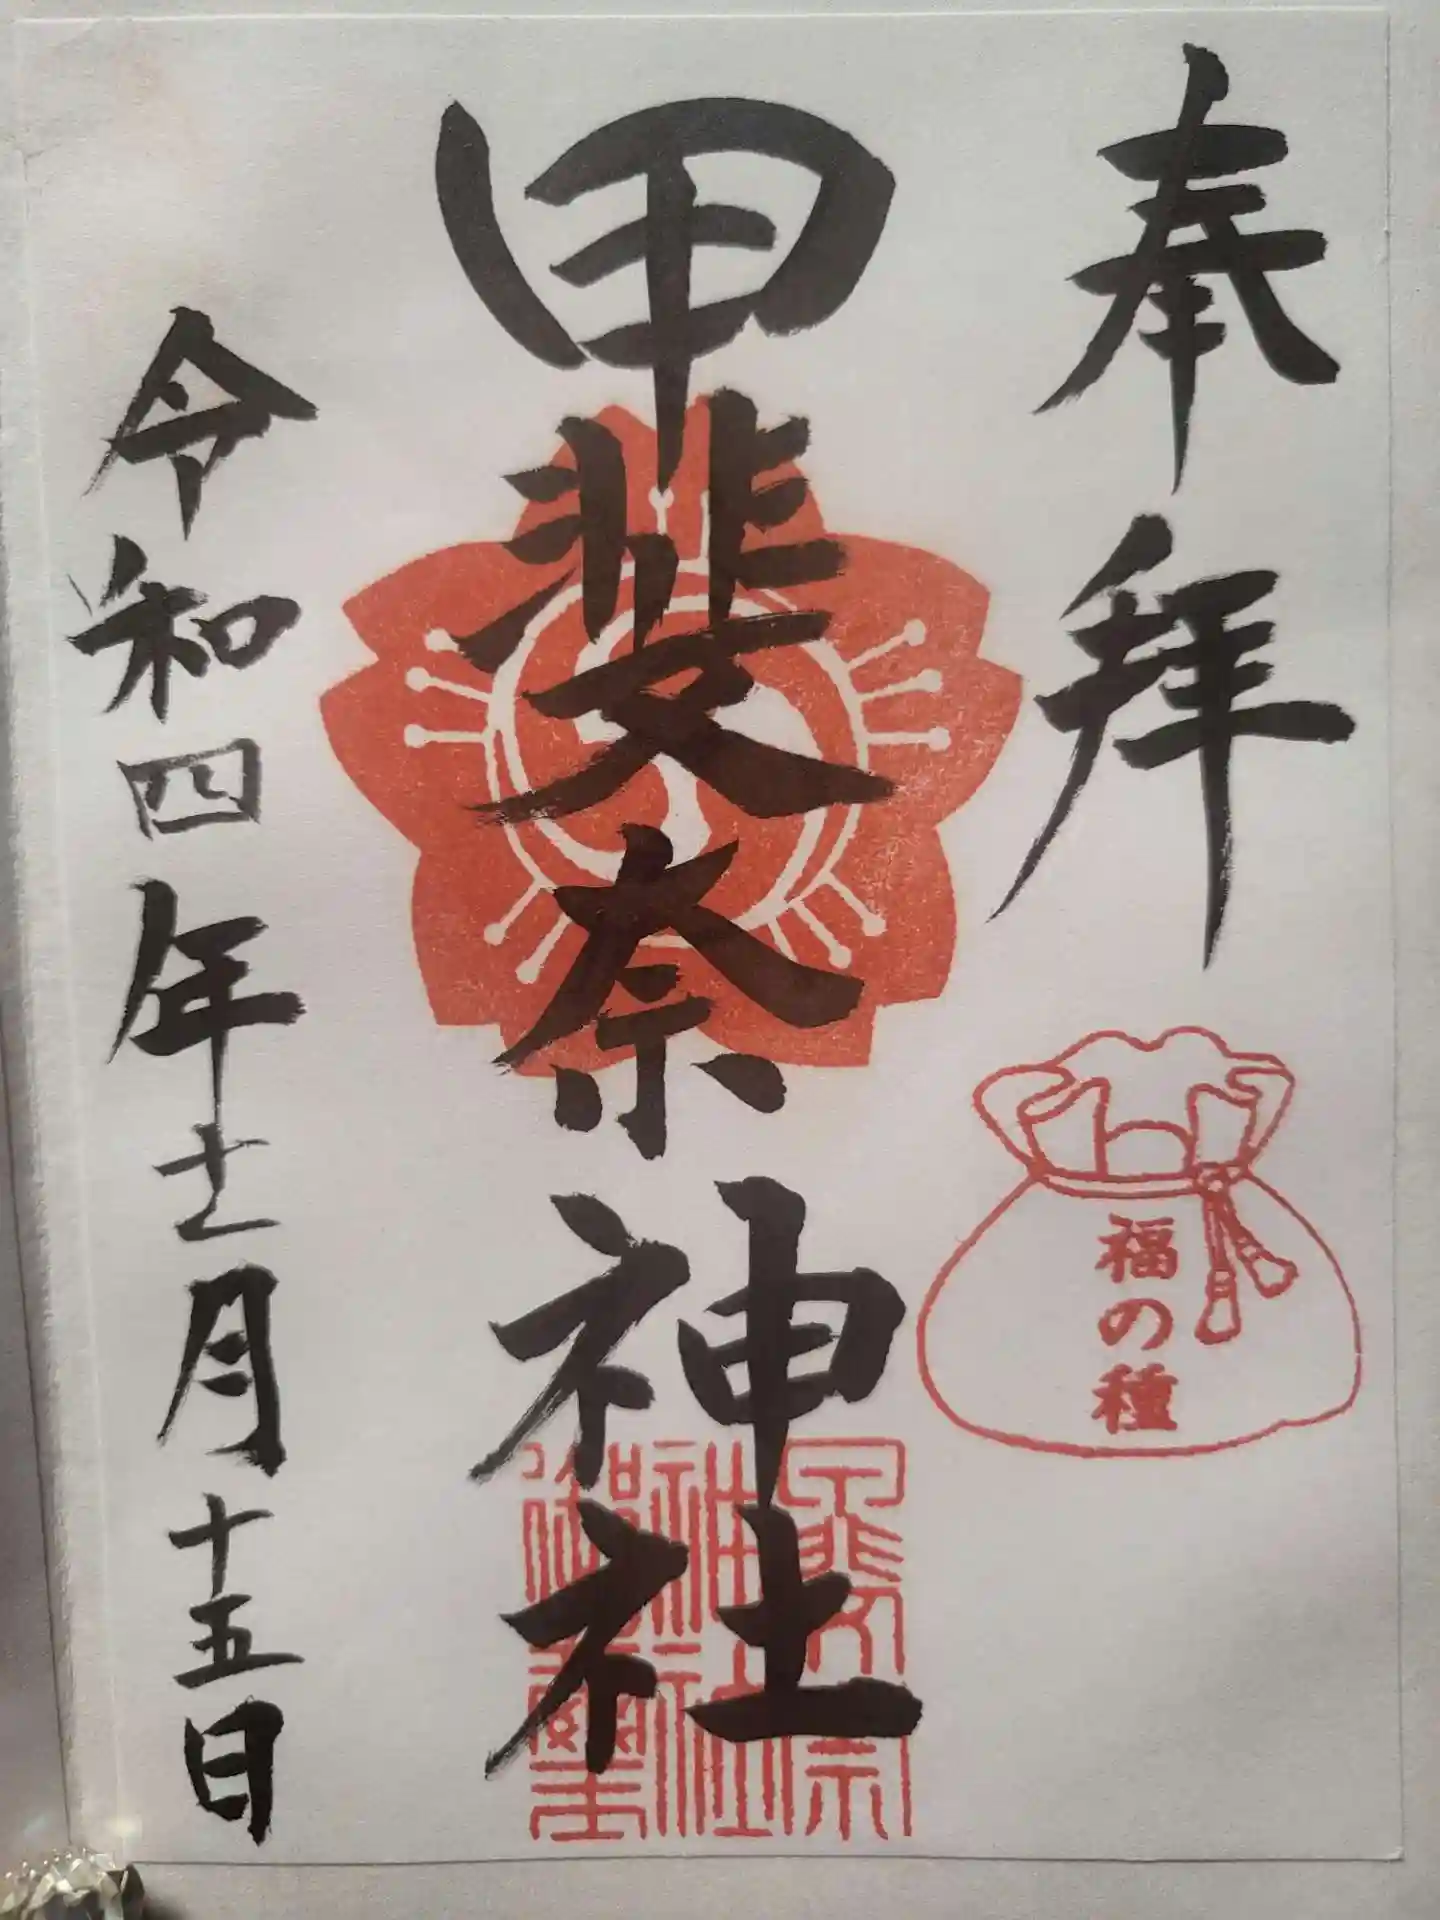 奉拝
福の種
甲斐奈神社
令和四年十一月十五日